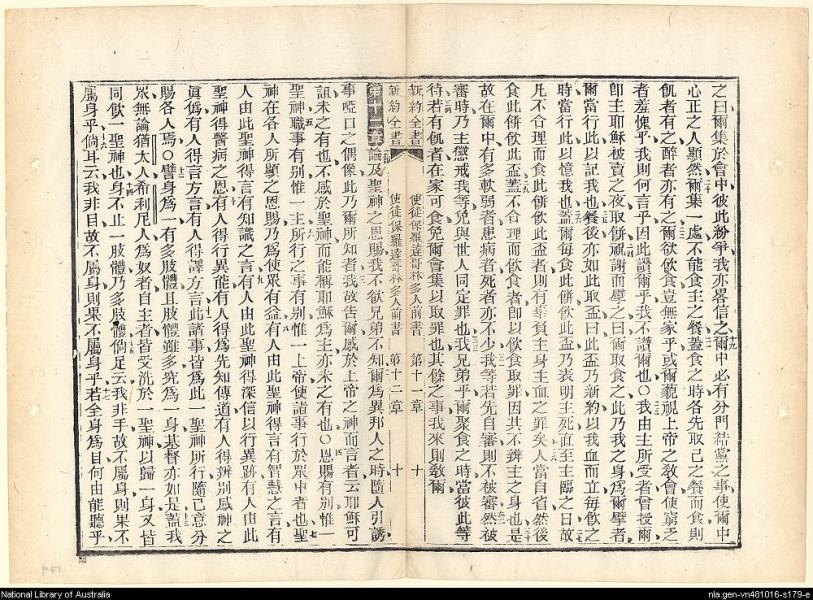 之曰爾集於會中彼此紛爭我亦畧信之爾中必有分門結黨之事使爾中
心正之人顯然爾集一處不能食主之餐蓋食之時各先取己之餐而食則
飢者有之醉者亦有之爾欲飲食豈無家乎或爾藐視上帝之敎會使窮乏
者羞愧乎我則何言乎因此讚爾乎我不讚爾也○我由主所受者曾授爾
卽主耶穌被賣之夜取餅祝謝而擘之曰爾取食之此乃我之身爲爾擘者
爾當行此以記我也餐後亦如此取盃曰此盃乃新約以我血而立每飲之
時當行此以憶我也蓋爾每食此餅飲此盃乃表明主死直至主臨之日故
凡不合理而食此餅飲此盃者則有辜負主身主血之罪矣人當自省然後
食此餅飲此盃蓋不合理而飲食者卽以飲食取罪因其不辨主之身也是
故在爾中有多軟弱者患病者死者亦不少我等若先自審則不被審然被
審時乃主懲戒我等免與世人同定罪也我兄弟乎爾聚食之時當彼此等
待若有飢者在家可食免爾會集以取罪也其餘之事我來則敎爾
新約全書 使徒保羅達哥林多人前書 第十一章 十
新約全書 使徒保羅達哥林多人前書 第十二章 十
論及聖神之恩賜我不欲兄弟不知爾爲異邦人之時隨人引誘
事啞口之偶像此乃爾所知者我故告爾感於上帝之神而言者云耶穌可
詛未之有也不感於聖神而能稱耶穌爲主亦未之有也○恩賜有別惟一
聖神職事有別惟一主所行之事有別惟一上帝使諸事行於衆中者也聖
神在各人所顯之恩賜乃爲使衆有益有人由此聖神得言有智慧之言有
人由此聖神得言有知識之言有人由此聖神得深信以行異跡有人由此
聖神得醫病之恩有人得行異能有人得爲先知傳道有人得辨別感神之
眞僞有人得言方言有人得譯方言此諸事皆爲此一聖神所行隨己意分
賜各人焉○譬身爲一有多肢體且肢體雖多究爲一身基督亦如是蓋我
衆無論猶太人希利尼人爲奴者自主者皆受洗於一聖神以歸一身又皆
同飲一聖神也身不止一肢體乃多肢體倘足云我非手故不屬身則果不
屬身乎倘耳云我非目故不屬身則果不屬身乎若全身爲目何由能聽乎
National Library of Australia
nla.gen-vn481016-s179-e